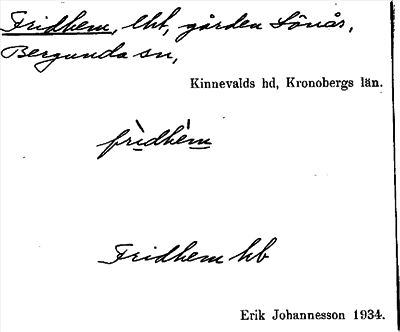 Fridhem, lht, gården Sönås,
Bergunda sn,
Kinnevalds hd, Kronobergs län.
frìdhém
Fridhem hb
Erik Johannesson 1934.